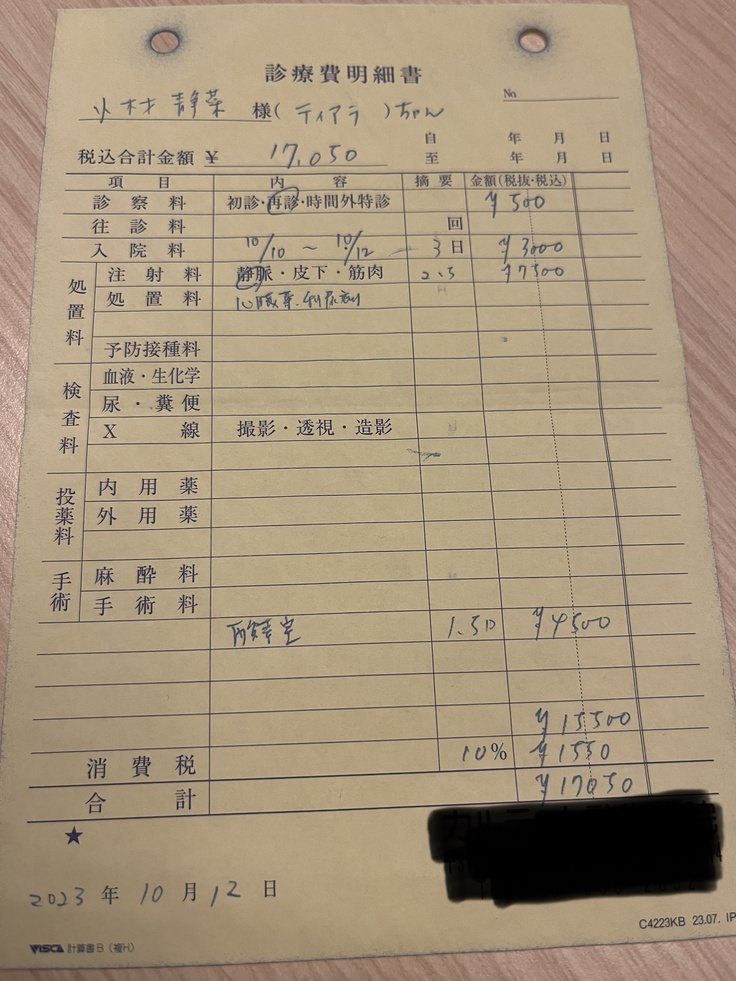 診療費明細書
No.
小林 静菜 様(ティアラ)ちゃん
自 年 月 日
税込合計金額 ¥ 17,050
至 年 月 日
項目 内容 摘要 金額(税抜・税込)
診察料 初診・再診・時間外特診 ¥500
往診料 回
入院料 10/10 〜 10/12 3日 ¥3000
処置料
注射料 静脈・皮下・筋肉 2.5 ¥7500
処置料 心臓薬、利尿剤
予防接種料
検査料
血液・生化学
尿・糞便
X線 撮影・透視・造影
投薬料
内用薬
外用薬
手術
麻酔料
手術料
酸素室 1.5日 ¥4500
¥15500
消費税 10% ¥1550
合計 ¥17050
★
2023年 10月 12日
VISCA 計算書B(複H)
C4223KB 23.07. IP